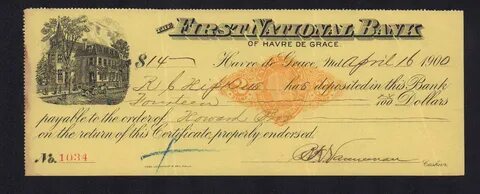 THE FIRST NATIONAL BANK
OF HAVRE DE GRACE.
$14 Havre de Grace, Md April 16 1900
R. J. has deposited in this Bank
Fourteen 100 Dollars
payable to the order of Howard
on the return of this Certificate properly endorsed.
No. 1034 Cashier.